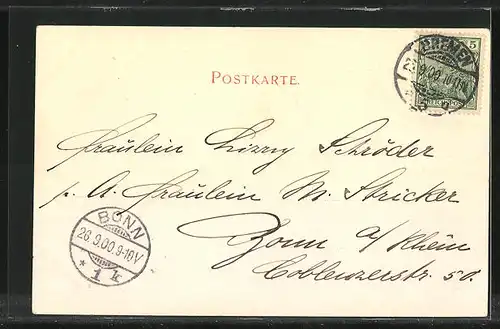 POSTKARTE.
5
BREMEN
Fräulein Lizzy Ströder
p. A. Fräulein M. Stricker
Bonn a/Rhein
Coblenzerstr. 50.
BONN
26.9.00.9-10V
* 1 k